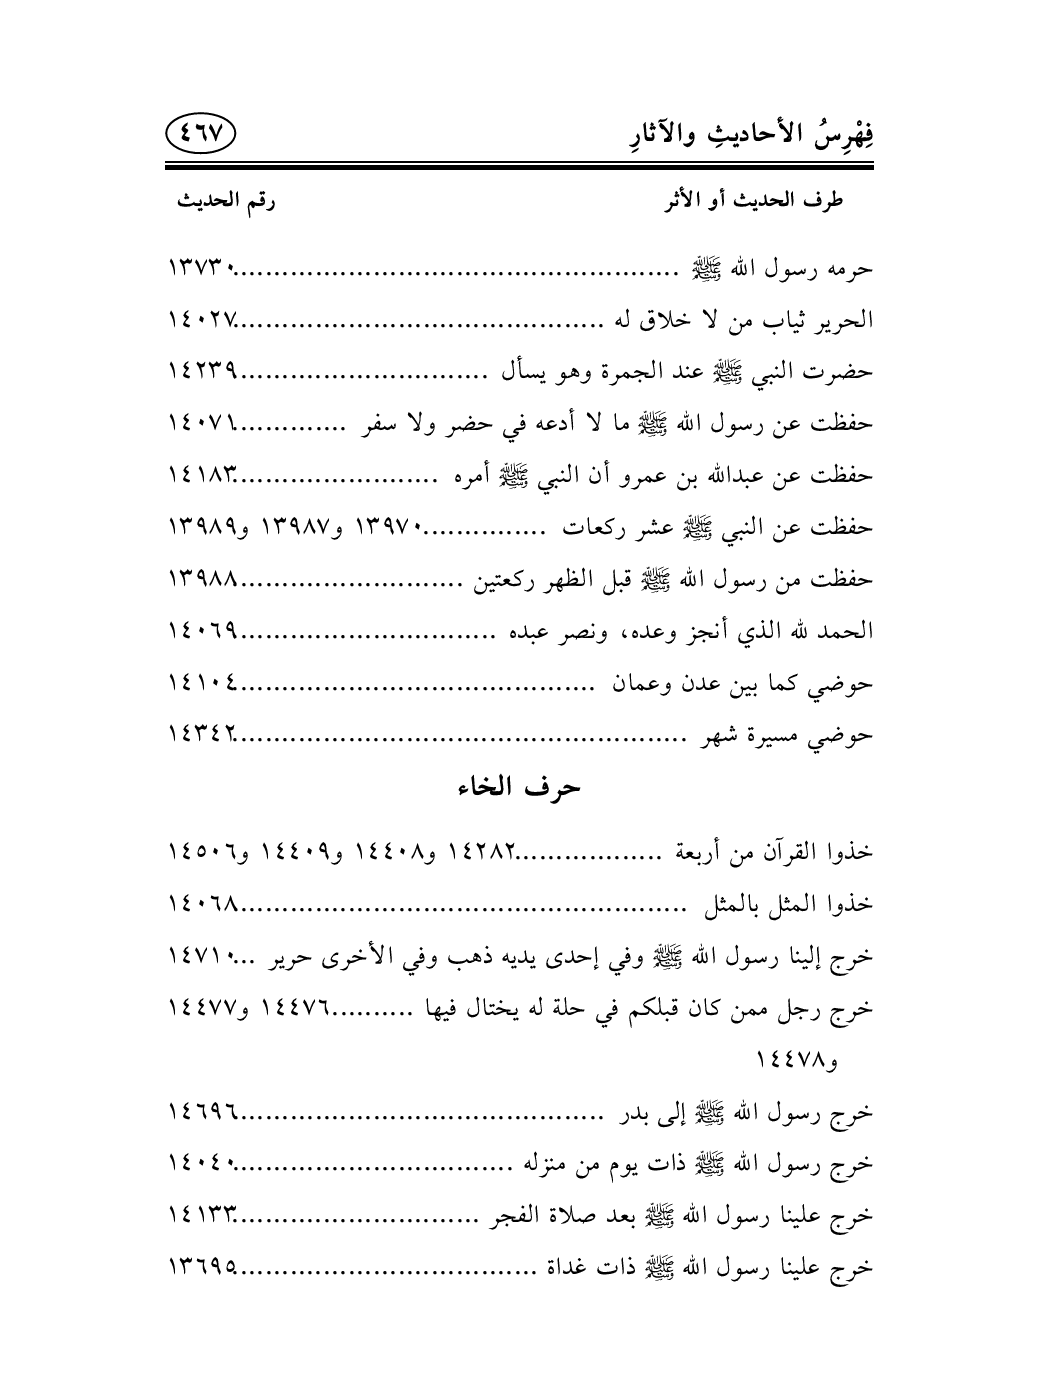 فِهْرِسُ الأحاديثِ والآثارِ ٤٦٧
طرف الحديث أو الأثر رقم الحديث
حرمه رسول الله ﷺ ......................................................١٣٧٣٠
الحرير ثياب من لا خلاق له .............................................١٤٠٢٧
حضرت النبي ﷺ عند الجمرة وهو يسأل ..............................١٤٢٣٩
حفظت عن رسول الله ﷺ ما لا أدعه في حضر ولا سفر ..............١٤٠٧١
حفظت عن عبدالله بن عمرو أن النبي ﷺ أمره .........................١٤١٨٣
حفظت عن النبي ﷺ عشر ركعات ...............١٣٩٧٠ و١٣٩٨٧ و١٣٩٨٩
حفظت من رسول الله ﷺ قبل الظهر ركعتين ...........................١٣٩٨٨
الحمد لله الذي أنجز وعده، ونصر عبده ...............................١٤٠٦٩
حوضي كما بين عدن وعمان ...........................................١٤١٠٤
حوضي مسيرة شهر .......................................................١٤٣٤٢
حرف الخاء
خذوا القرآن من أربعة ..................١٤٢٨٢ و١٤٤٠٨ و١٤٤٠٩ و١٤٥٠٦
خذوا المثل بالمثل ......................................................١٤٠٦٨
خرج إلينا رسول الله ﷺ وفي إحدى يديه ذهب وفي الأخرى حرير ...١٤٧١٠
خرج رجل ممن كان قبلكم في حلة له يختال فيها ..........١٤٤٧٦ و١٤٤٧٧
و١٤٤٧٨
خرج رسول الله ﷺ إلى بدر ............................................١٤٦٩٦
خرج رسول الله ﷺ ذات يوم من منزله ..................................١٤٠٤٠
خرج علينا رسول الله ﷺ بعد صلاة الفجر ..............................١٤١٣٣
خرج علينا رسول الله ﷺ ذات غداة .....................................١٣٦٩٥